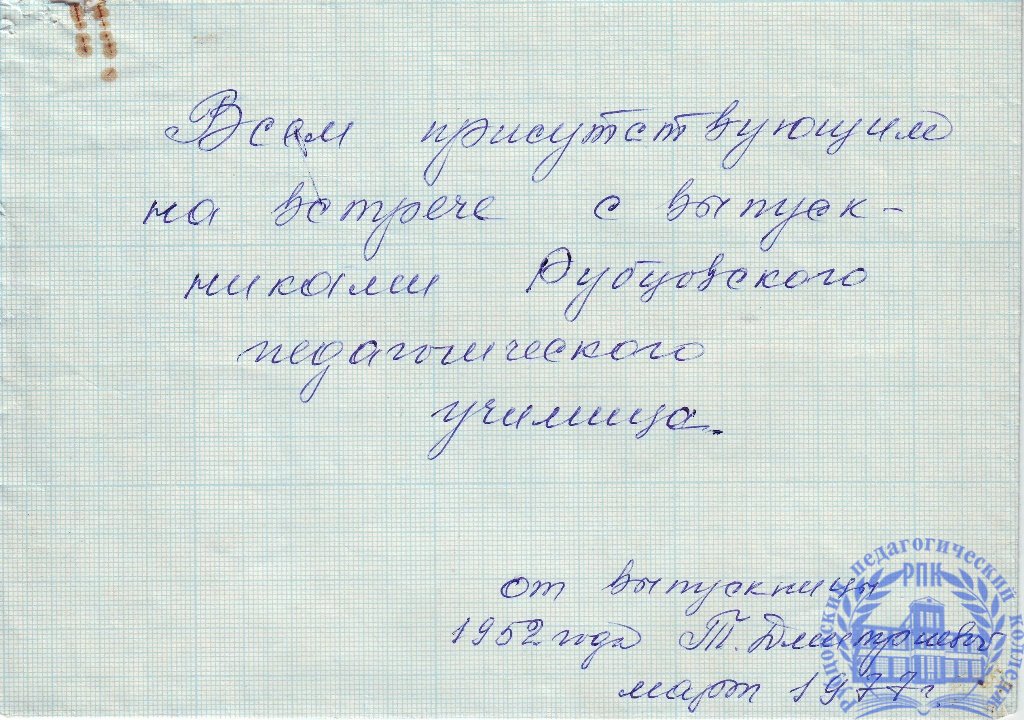 Всем присутствующим
на встрече с выпуск-
никами Рубцовского
педагогического
училища.
от выпускницы
1952 года Т. Дмитриевой
март 1977 г.
Рубцовский педагогический колледж
РПК